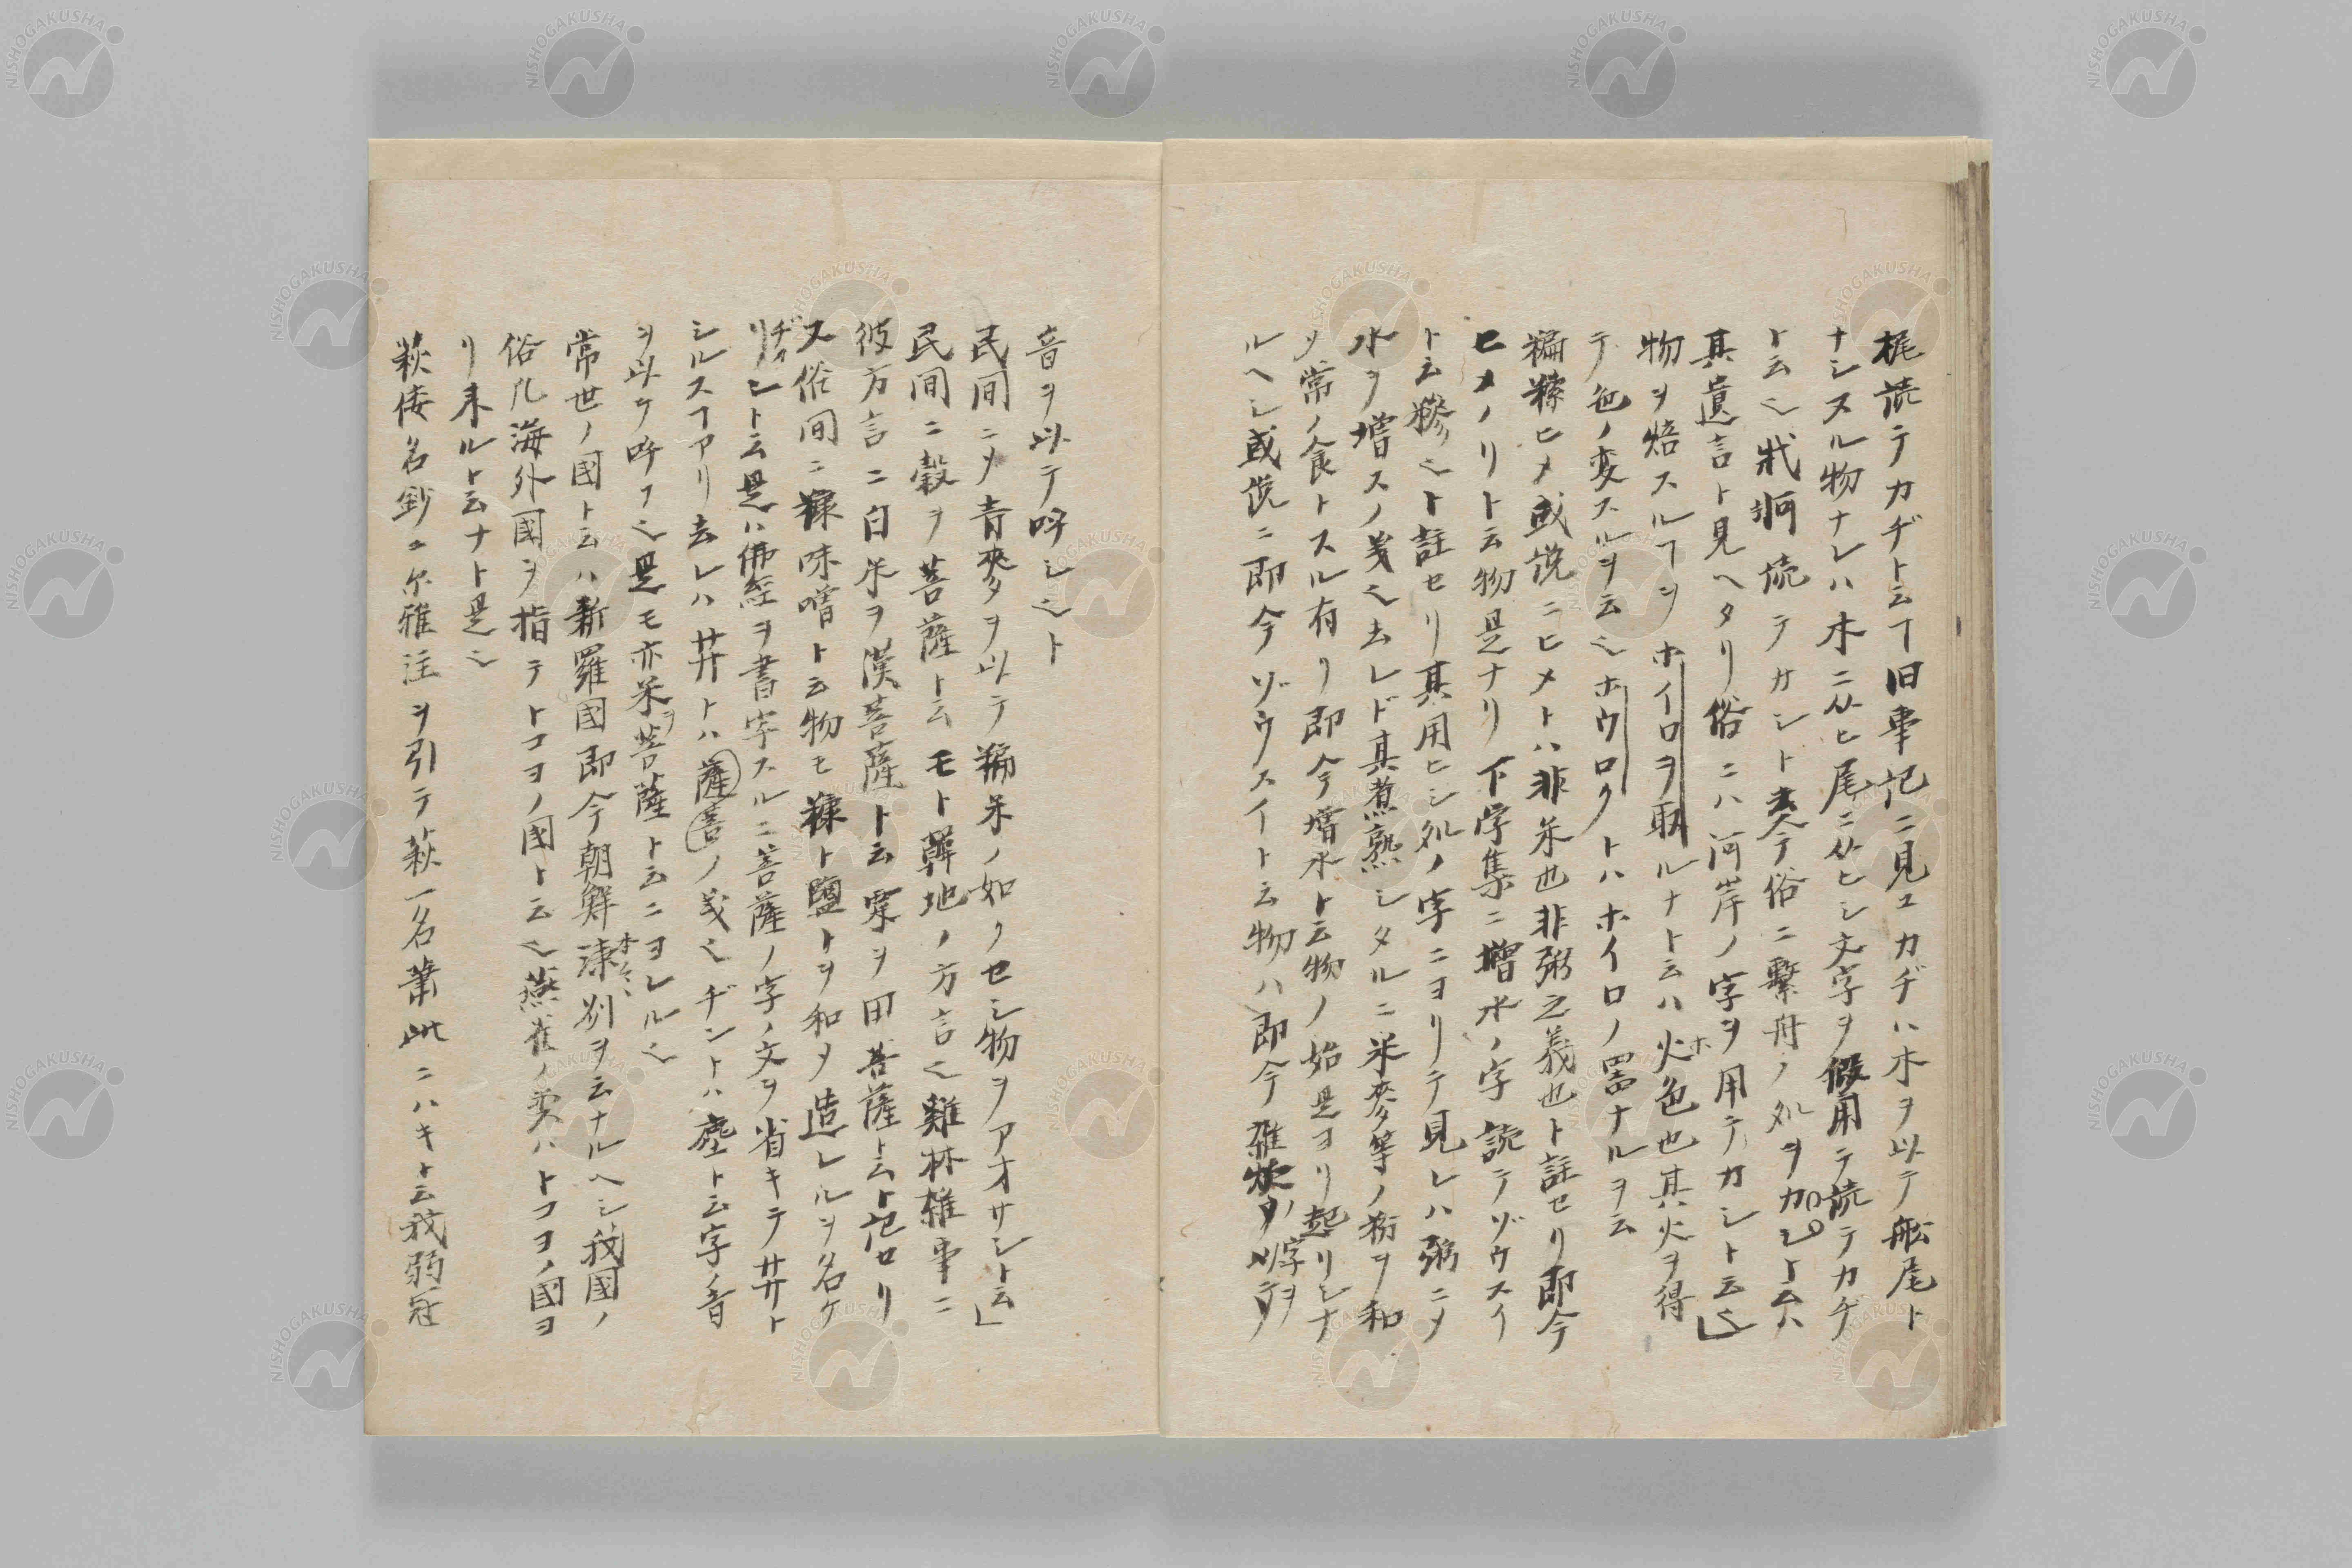 梶読テカヂト云フ旧事記ニ見エカヂハ木ヲ以テ舩尾ト
ナシヌル物ナレハ木ニ从ヒ尾ニ从ヒシ文字ヲ假用テ読テカヂ
ト云也牂牁読テカシト云今俗ニ繫舟ノ処ヲカシト云ハ
其遺言ト見ヘタリ俗ニハ河岸ノ字ヲ用テカシト云也
物ヲ焙スルヿヲホイロヲ取ルナト云ハ火色也其火ヲ得
テ色ノ変スルヲ云也ホウロクトハホイロノ器ナルヲ云
糄𥻨ヒメ或説ニヒメトハ非米也非粥之義也ト註セリ即今
ヒメノリト云物是ナリ下学集ニ増水ノ字読テゾウスイ
ト云糝也ト註セリ其用ヒシ処ノ字ニヨリテ見レハ粥ニメ
水ヲ増スノ義也去レド其煮熟シタルニ米麥等ノ粉ヲ和
メ常ノ食トスル有リ即今増水ト云物ノ始是ヨリ起リシナ
ルヘシ或説ニ即今ゾウスイト云物ハ即今雑炊ノ字ヲ以テ
音ヲ以テ呼シ也ト
民間ニメ青麥ヲ以テ糄米ノ如クセシ物ヲアオサシト云」
民間ニ穀ヲ菩薩ト云モト韓地ノ方言也雞林雑事ニ
彼方言ニ白米ヲ漢菩薩ト云粟ヲ田菩薩ト云ト記セリ
又俗間ニ糠味噌ト云物モ糠ト鹽トヲ和メ造レルヲ名ケ
リヂンシト云是ハ佛經ヲ書字スルニ菩薩ノ字ノ文ヲ省キテ𦬇ト
シルスヿアリ去レハ𦬇トハ薩菩ノ義也ヂントハ塵ト云字ノ音
ヲ以テ呼フ也是モ亦米ヲ菩薩ト云ニヨレル也
常世ノ國ト云ハ新羅國即今朝鮮溱州ヲ云ナルヘシ我國ノ
俗凡海外國ヲ指テトコヨノ國ト云也燕雀ノ類ハトコヨノ國ヨ
リ来ルト云ナト是也
萩倭名鈔ニ尓雅注ヲ引テ萩一名蕭此ニハキト云我弱冠